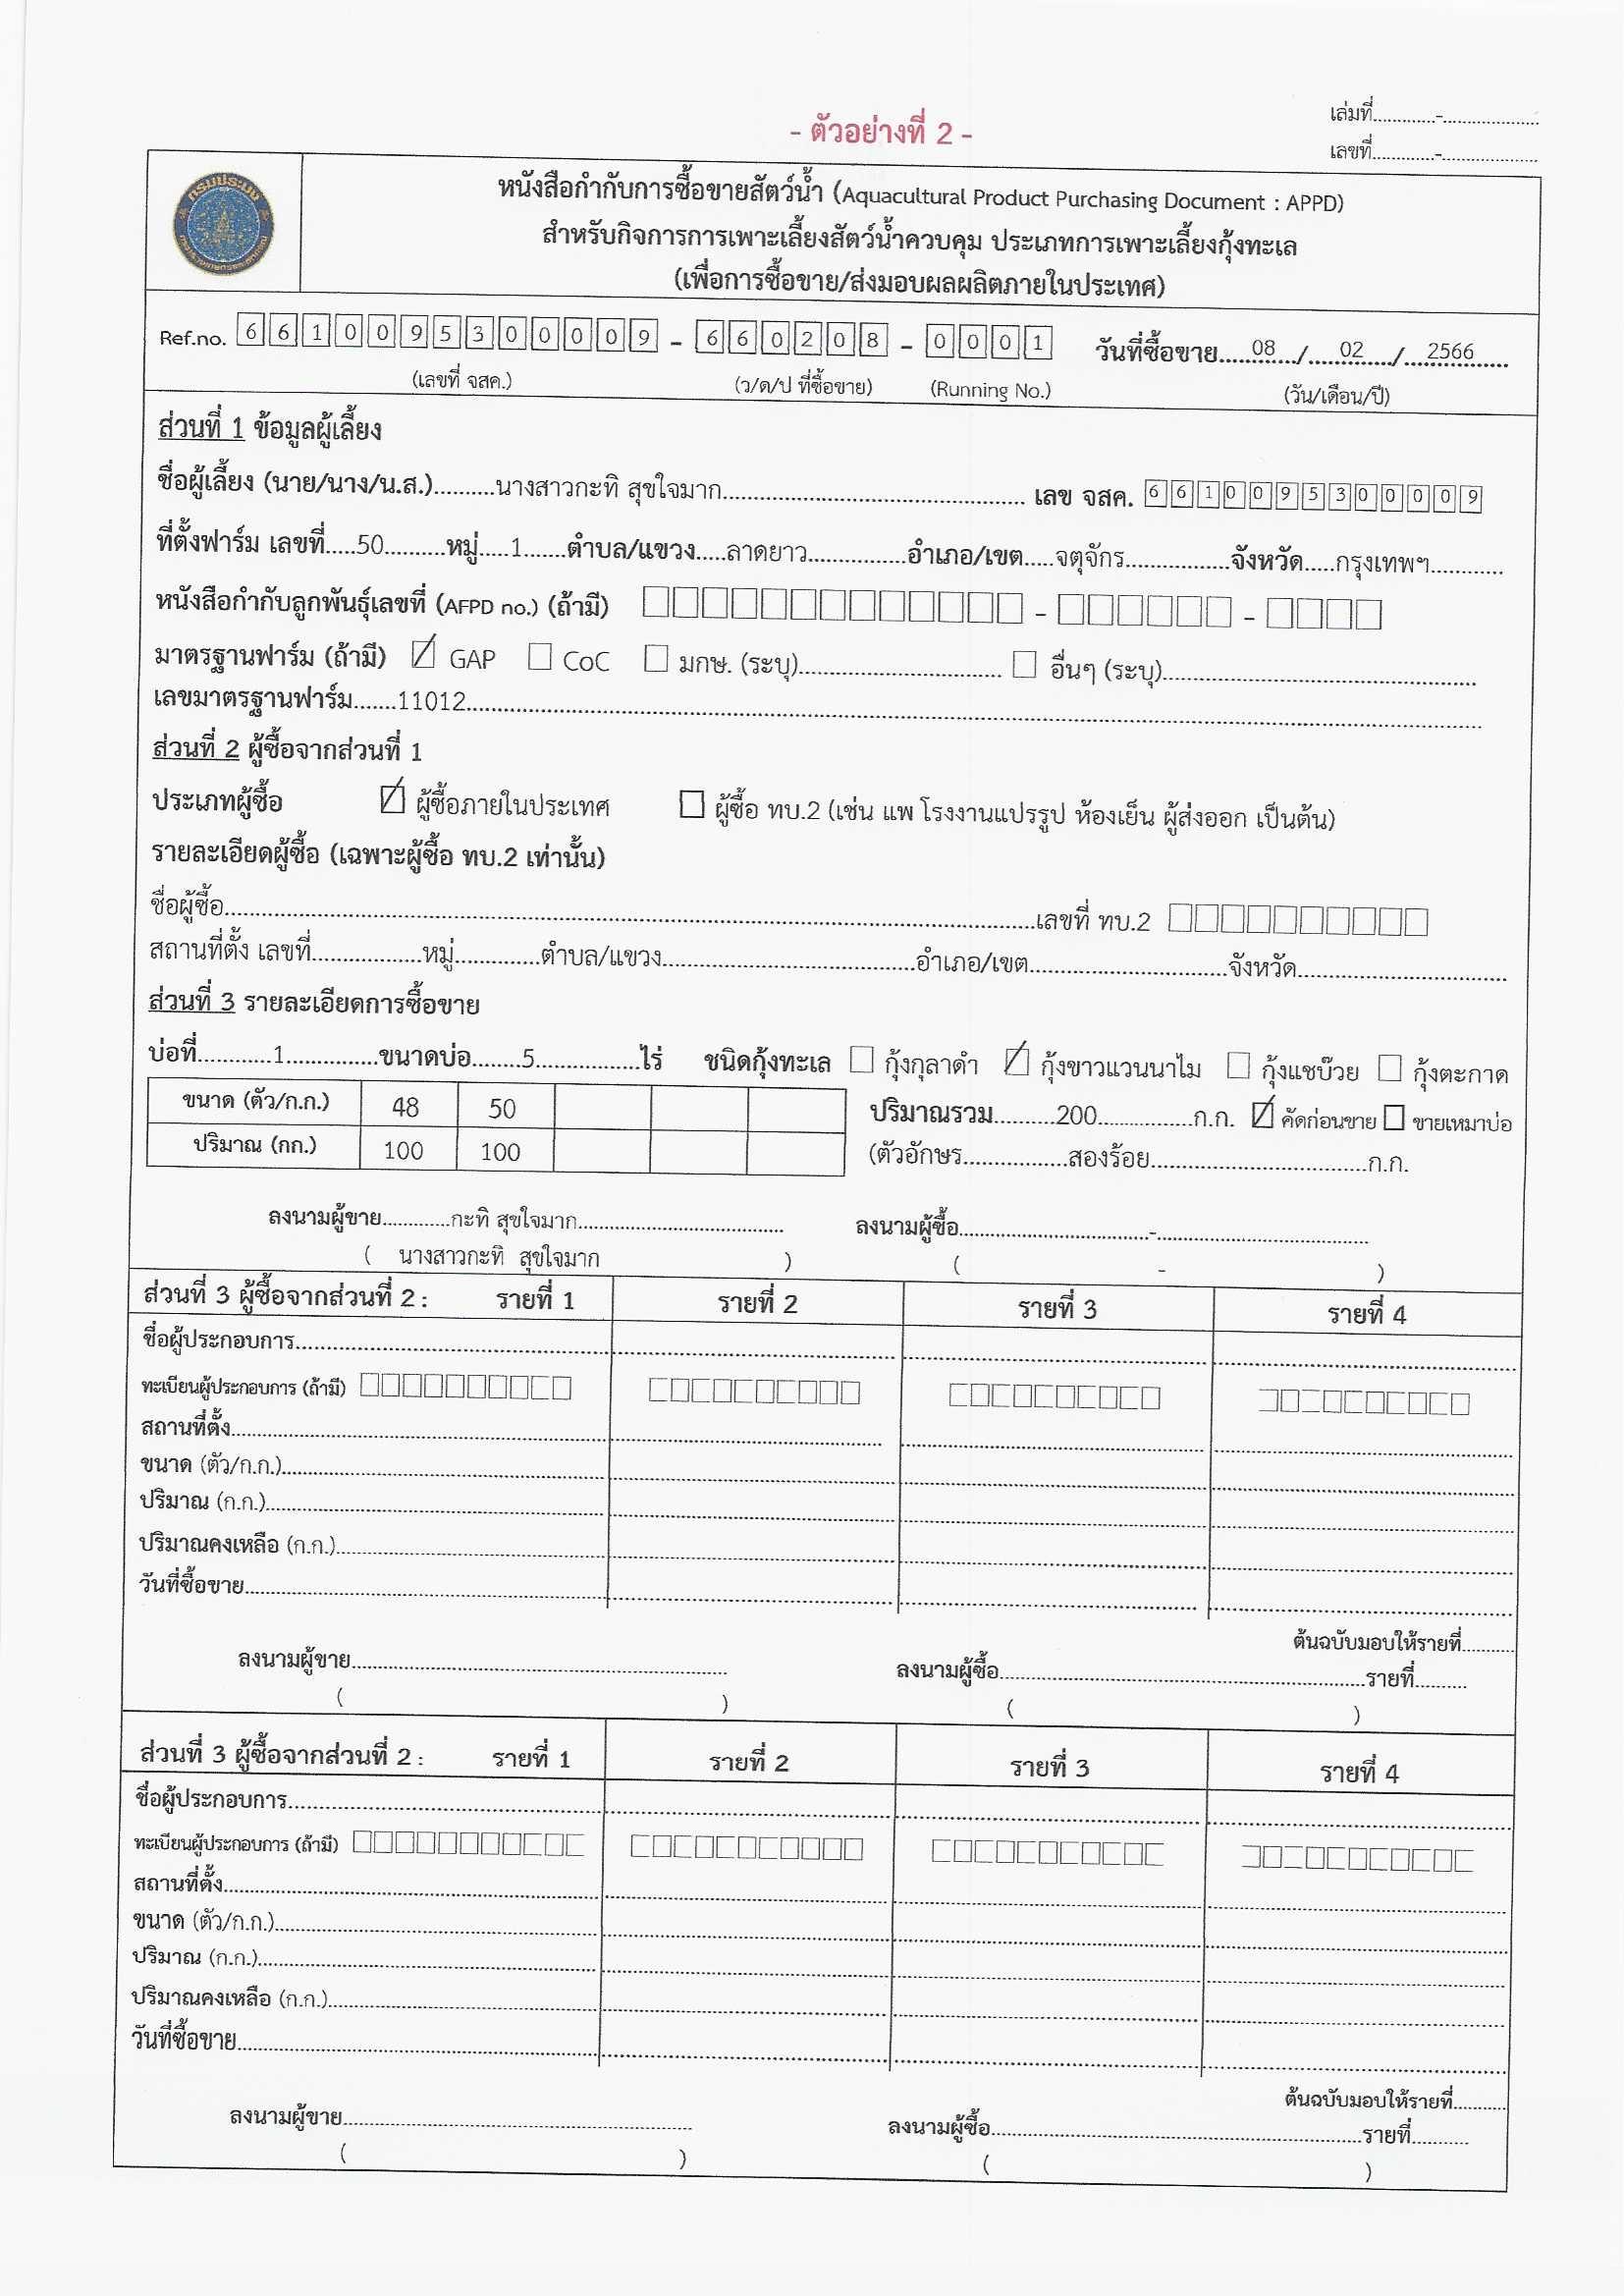 เล่มที่............-...................
- ตัวอย่างที่ 2 -
เลขที่............-...................
กรมประมง
หนังสือกำกับการซื้อขายสัตว์น้ำ (Aquacultural Product Purchasing Document : APPD)
สำหรับกิจการการเพาะเลี้ยงสัตว์น้ำควบคุม ประเภทการเพาะเลี้ยงกุ้งทะเล
(เพื่อการซื้อขาย/ส่งมอบผลผลิตภายในประเทศ)
Ref.no. 6 6 1 0 0 9 5 3 0 0 0 0 9 - 6 6 0 2 0 8 - 0 0 0 1 วันที่ซื้อขาย......08....../......02....../......2566......
(เลขที่ จสค.) (ว/ด/ป ที่ซื้อขาย) (Running No.) (วัน/เดือน/ปี)
ส่วนที่ 1 ข้อมูลผู้เลี้ยง
ชื่อผู้เลี้ยง (นาย/นาง/น.ส.)..........นางสาวกะทิ สุขใจมาก.......................... เลข จสค. 6 6 1 0 0 9 5 3 0 0 0 0 9
ที่ตั้งฟาร์ม เลขที่.....50..........หมู่.....1.......ตำบล/แขวง.....ลาดยาว................อำเภอ/เขต.....จตุจักร.................จังหวัด.....กรุงเทพฯ............
หนังสือกำกับลูกพันธุ์เลขที่ (AFPD no.) (ถ้ามี) □□□□□□□□□□□□□ - □□□□□□ - □□□□
มาตรฐานฟาร์ม (ถ้ามี) ☑ GAP □ CoC □ มกษ. (ระบุ)................................. □ อื่นๆ (ระบุ)...................................................
เลขมาตรฐานฟาร์ม.......11012..............................
ส่วนที่ 2 ผู้ซื้อจากส่วนที่ 1
ประเภทผู้ซื้อ ☑ ผู้ซื้อภายในประเทศ □ ผู้ซื้อ ทบ.2 (เช่น แพ โรงงานแปรรูป ห้องเย็น ผู้ส่งออก เป็นต้น)
รายละเอียดผู้ซื้อ (เฉพาะผู้ซื้อ ทบ.2 เท่านั้น)
ชื่อผู้ซื้อ..............................เลขที่ ทบ.2 □□□□□□□□□□
สถานที่ตั้ง เลขที่..................หมู่..............ตำบล/แขวง..............................อำเภอ/เขต..............................จังหวัด..............................
ส่วนที่ 3 รายละเอียดการซื้อขาย
บ่อที่............1...............ขนาดบ่อ........5.................ไร่ ชนิดกุ้งทะเล □ กุ้งกุลาดำ ☑ กุ้งขาวแวนนาไม □ กุ้งแชบ๊วย □ กุ้งตะกาด
ขนาด (ตัว/ก.ก.) 48 50
ปริมาณ (กก.) 100 100
ปริมาณรวม..........200................ก.ก. ☑ คัดก่อนขาย □ ขายเหมาบ่อ
(ตัวอักษร.................สองร้อย..............................ก.ก.
ลงนามผู้ขาย............กะทิ สุขใจมาก.............................. ลงนามผู้ซื้อ..............................-..............................
( นางสาวกะทิ สุขใจมาก ) ( - )
ส่วนที่ 3 ผู้ซื้อจากส่วนที่ 2 : รายที่ 1 รายที่ 2 รายที่ 3 รายที่ 4
ชื่อผู้ประกอบการ..............................
ทะเบียนผู้ประกอบการ (ถ้ามี) □□□□□□□□□□ □□□□□□□□□□ □□□□□□□□□□ □□□□□□□□□□
สถานที่ตั้ง..............................
ขนาด (ตัว/ก.ก.)..............................
ปริมาณ (ก.ก.)..............................
ปริมาณคงเหลือ (ก.ก.)..............................
วันที่ซื้อขาย..............................
ต้นฉบับมอบให้รายที่..........
ลงนามผู้ขาย.............................. ลงนามผู้ซื้อ..............................รายที่..........
( ) ( )
ส่วนที่ 3 ผู้ซื้อจากส่วนที่ 2 : รายที่ 1 รายที่ 2 รายที่ 3 รายที่ 4
ชื่อผู้ประกอบการ..............................
ทะเบียนผู้ประกอบการ (ถ้ามี) □□□□□□□□□□□ □□□□□□□□□□□ □□□□□□□□□□□ □□□□□□□□□□□
สถานที่ตั้ง..............................
ขนาด (ตัว/ก.ก.)..............................
ปริมาณ (ก.ก.)..............................
ปริมาณคงเหลือ (ก.ก.)..............................
วันที่ซื้อขาย..............................
ต้นฉบับมอบให้รายที่..........
ลงนามผู้ขาย.............................. ลงนามผู้ซื้อ..............................รายที่..........
( ) ( )